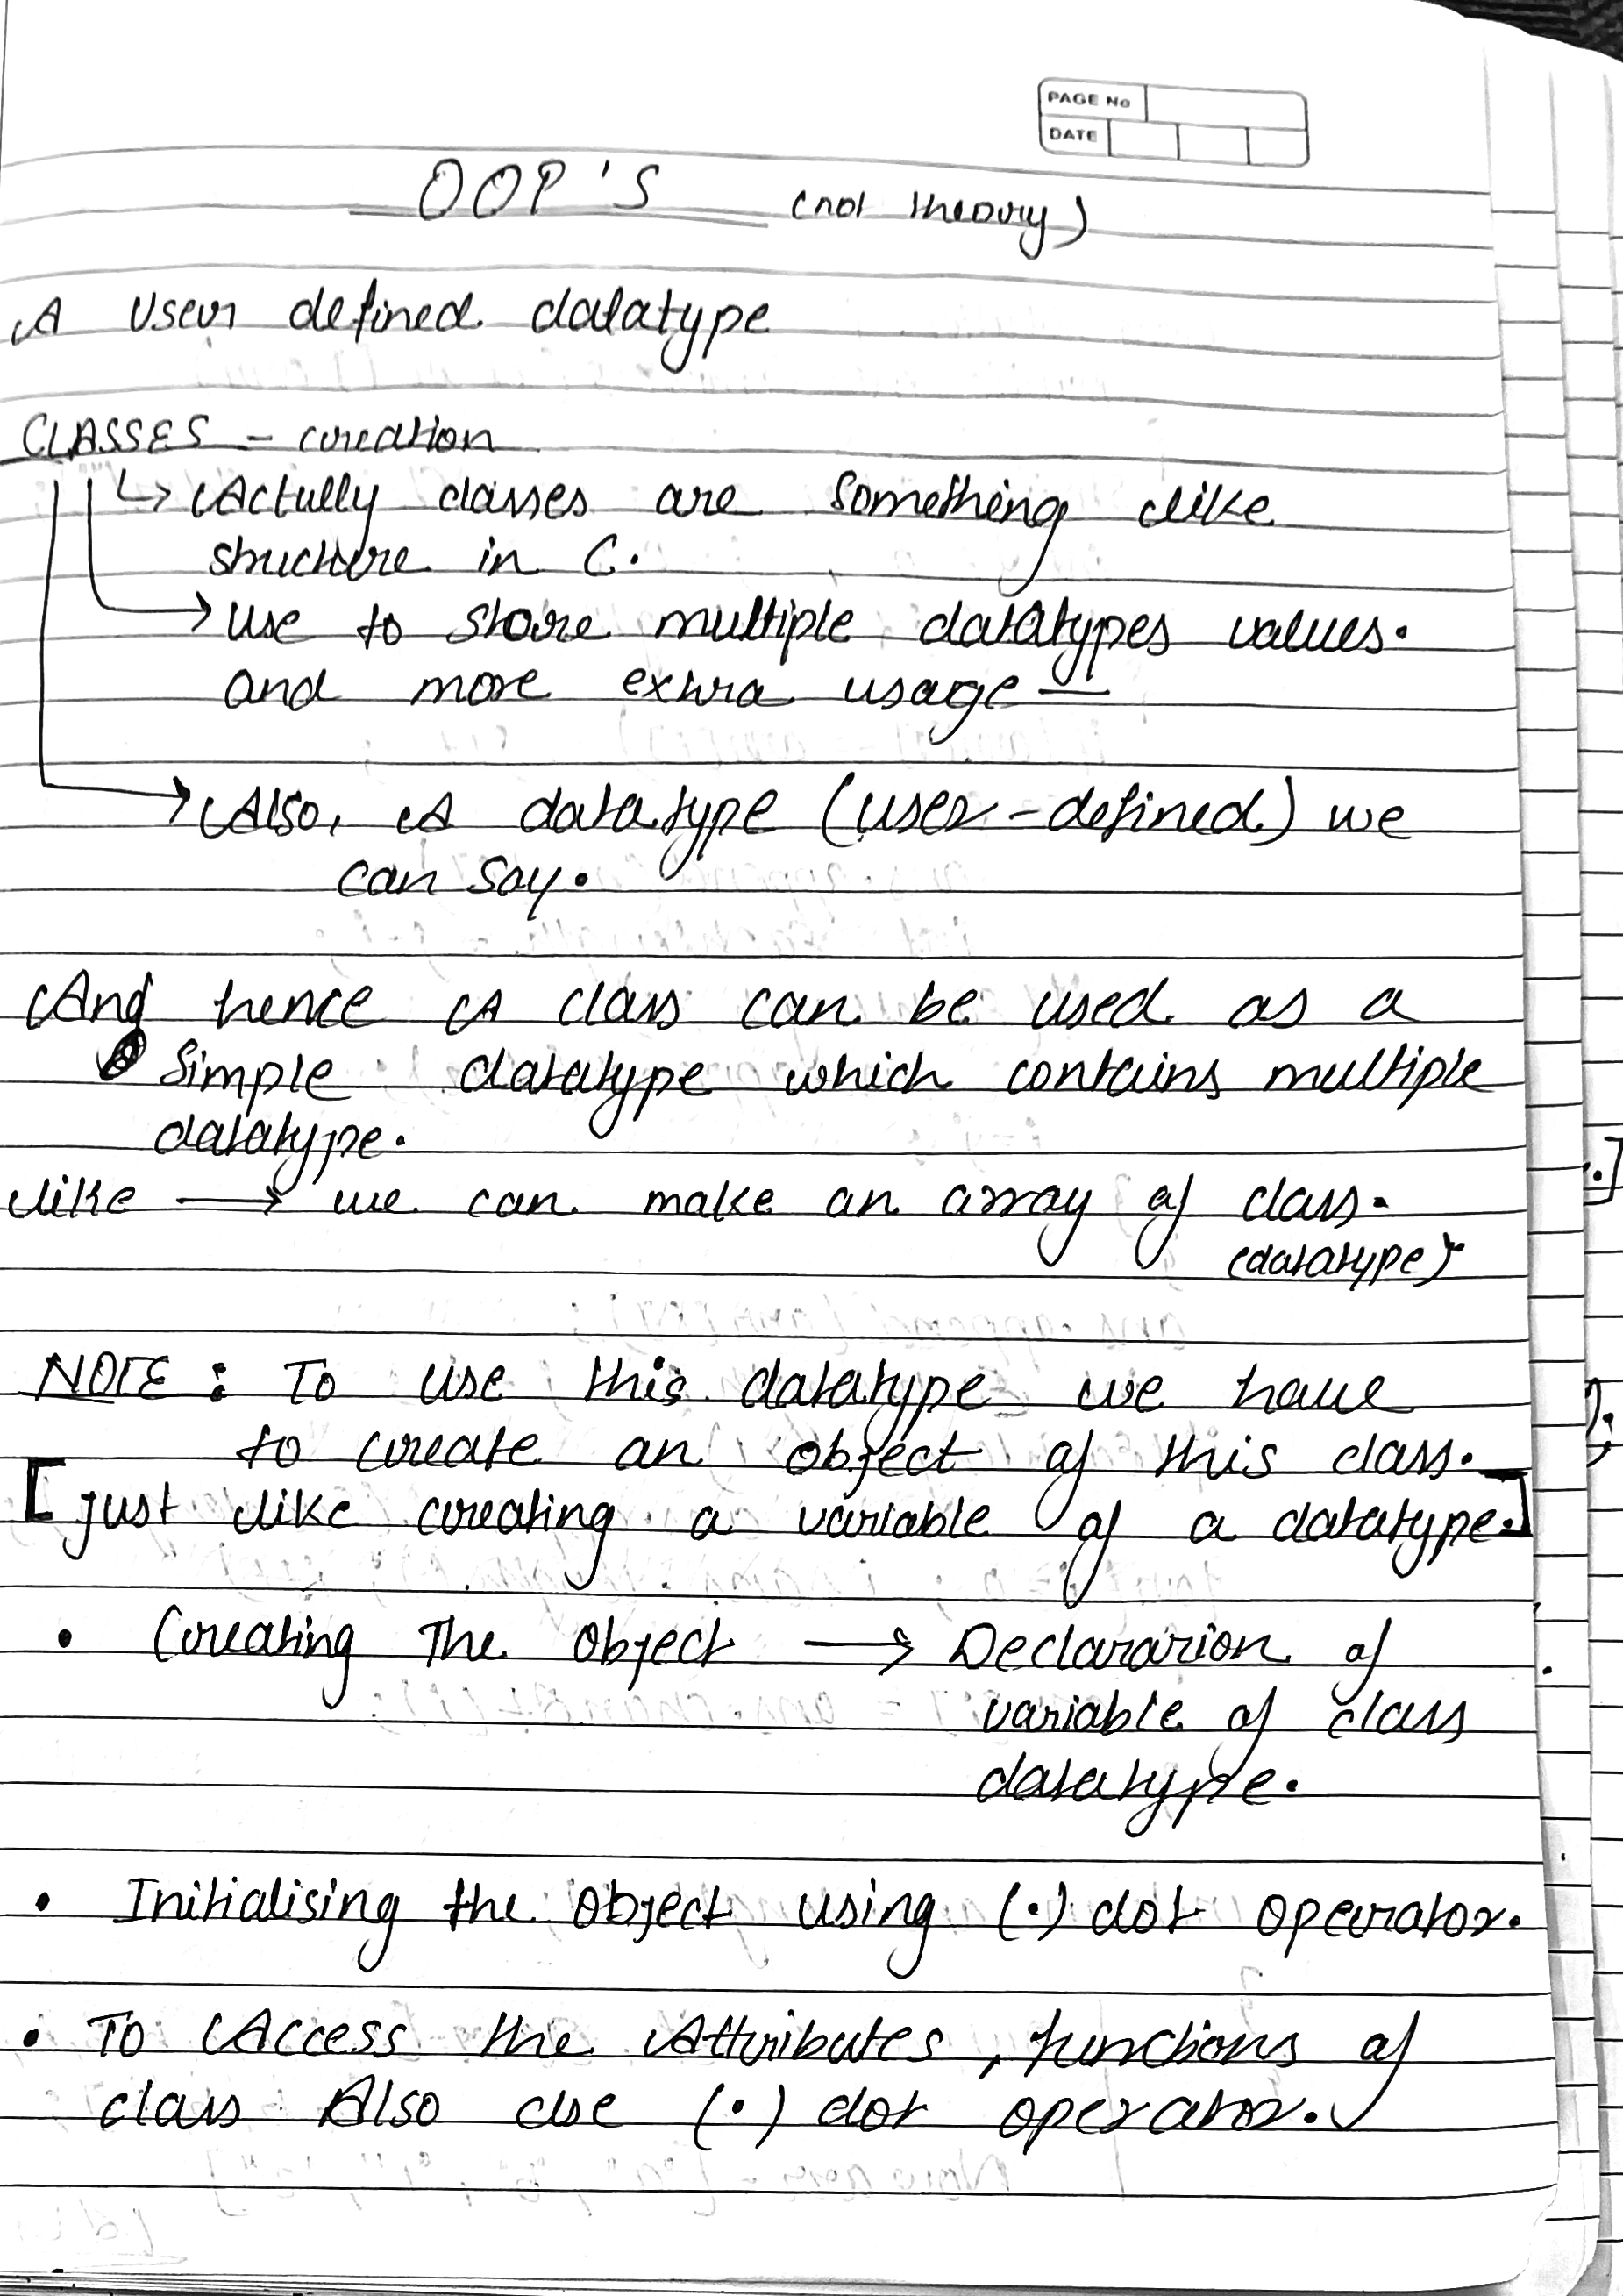 PAGE No
DATE
OOP'S (not theory)
A User defined datatype
CLASSES - creation
↳ Actully classes are something like
structure in C.
→ Use to store multiple datatypes values.
and more extra usage —
→ Also, A datatype (user-defined) we
can say.
And hence A class can be used as a
Simple datatype which contains multiple
datatype.
like → we can make an array of class.
(datatype)
NOTE : To use this datatype we have
to create an object of this class.
[just like creating a variable of a datatype.]
• Creating The object → Declararion of
variable of class
datatype.
• Initialising the object using (.) dot operator.
• To Access the Attributes, functions of
class Also use (.) dot operator.